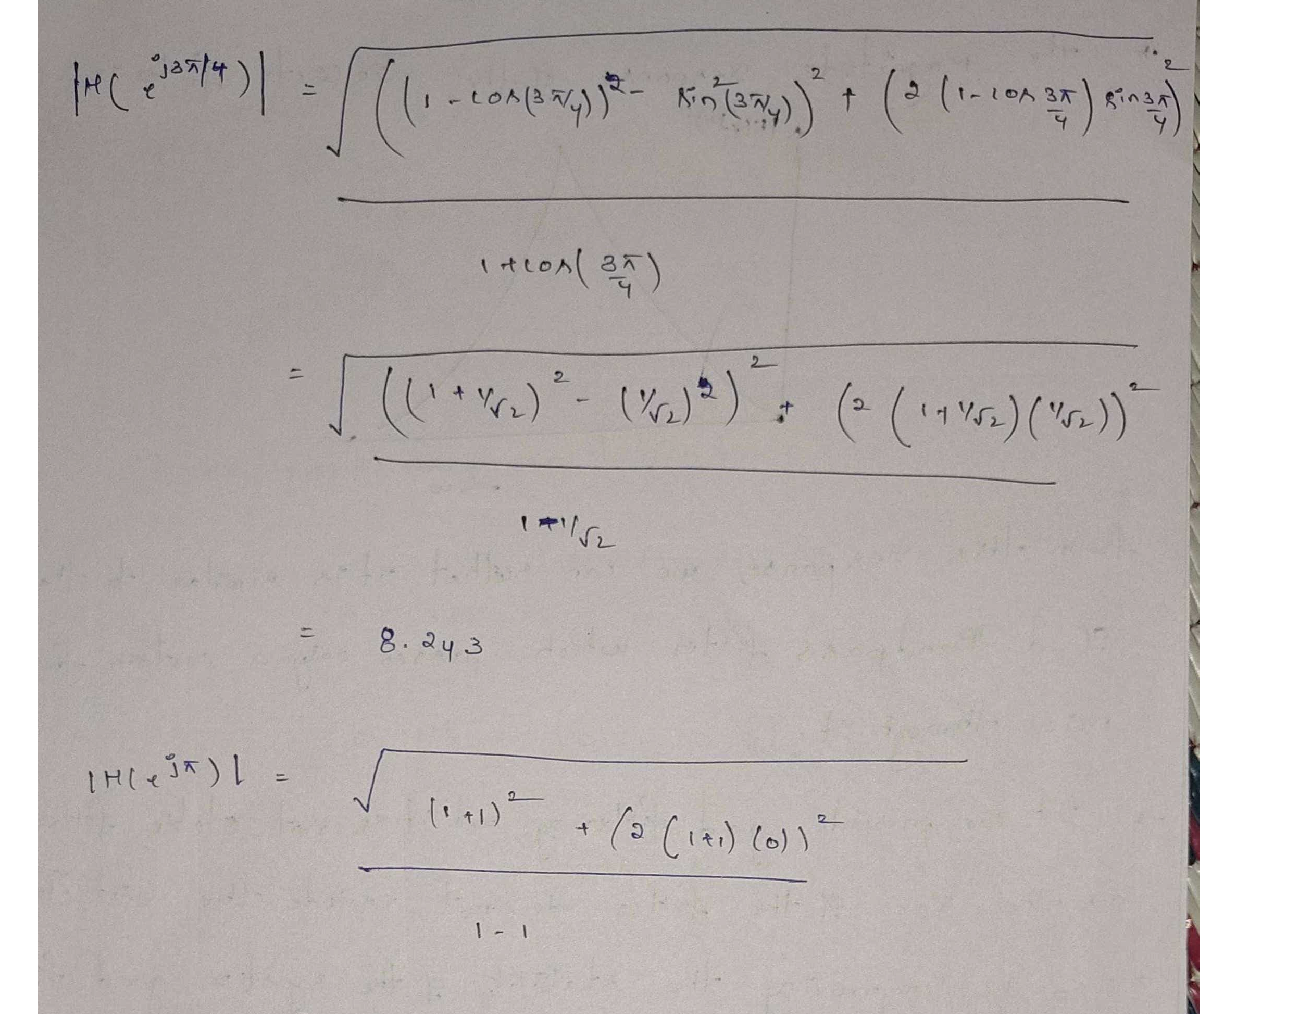 |H(e^{j3π/4})| = √((1-cos(3π/4))^2 - sin^2(3π/4))^2 + (2(1-cos 3π/4) sin 3π/4)^2
1+cos(3π/4)
= √((1+1/√2)^2 - (1/√2)^2)^2 + (2(1+1/√2)(1/√2))^2
1-1/√2
= 8.243
|H(e^{jπ})| = √(1+1)^2 + (2(1+1)(0))^2
1-1